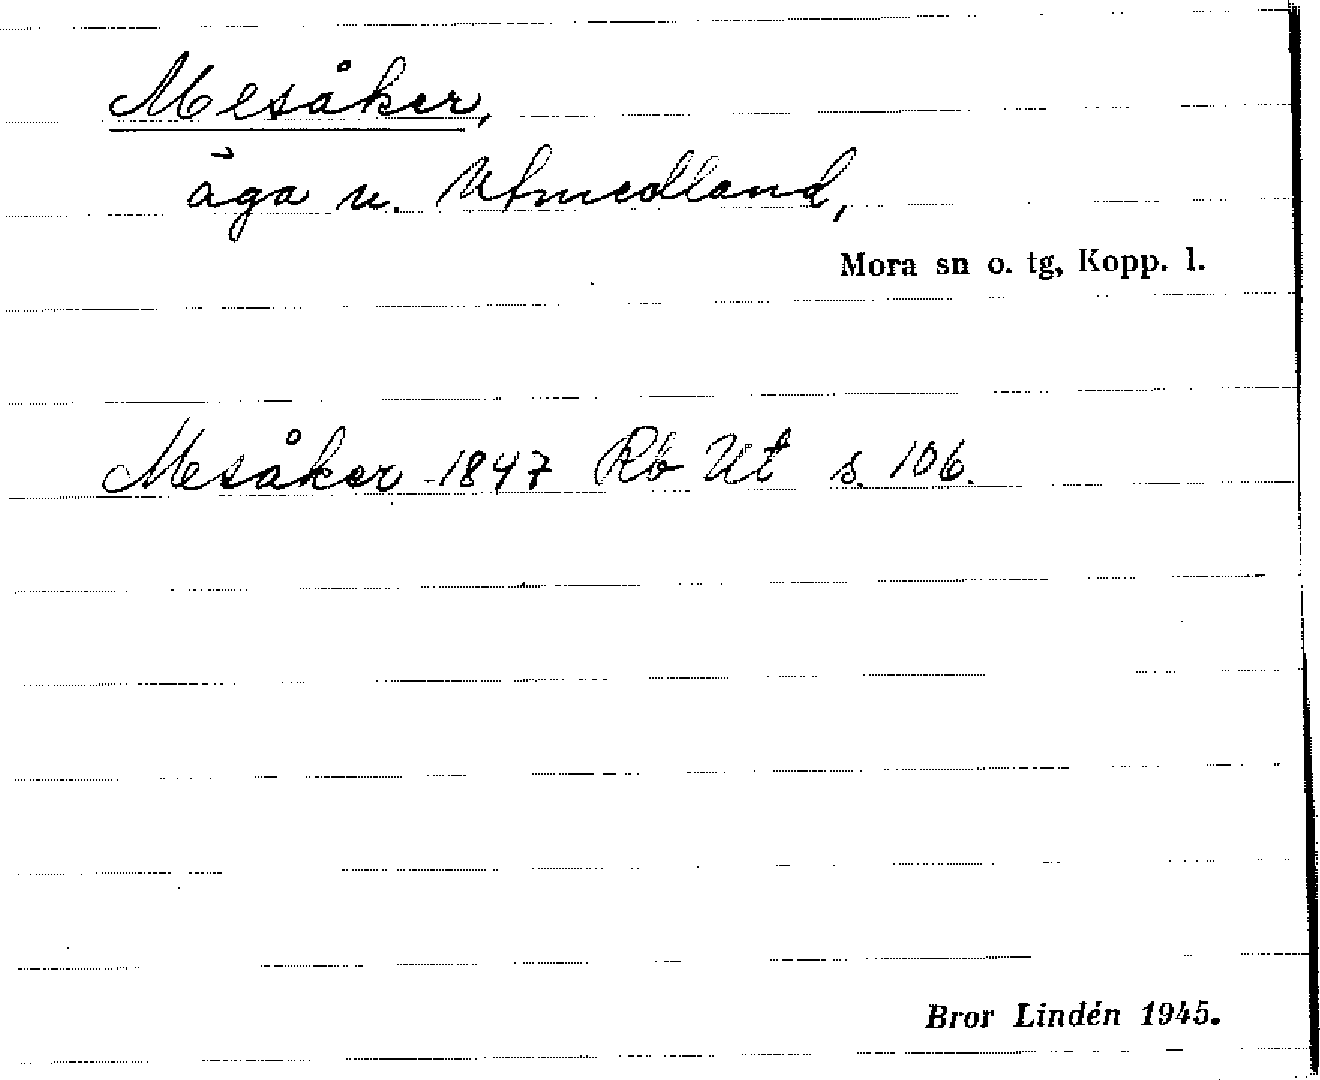 Mesåker,
äga u. Utmedland,
Mora sn o. tg, Kopp. l.
Mesåker 1847 Rb Ut s. 106.
Bror Lindén 1945.